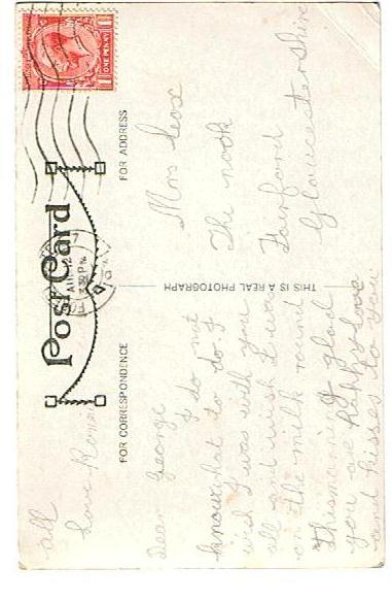 POST CARD
FOR CORRESPONDENCE
FOR ADDRESS
THIS IS A REAL PHOTOGRAPH
ONE PENNY
12
Dear George
I do not
know what to do. I
wish I was with you
all and wish I was
on the milk round
this morning glad
you are Happy Love
and kisses to you
all
Love
Mrs
The nook
Fairford
Gloucestershire